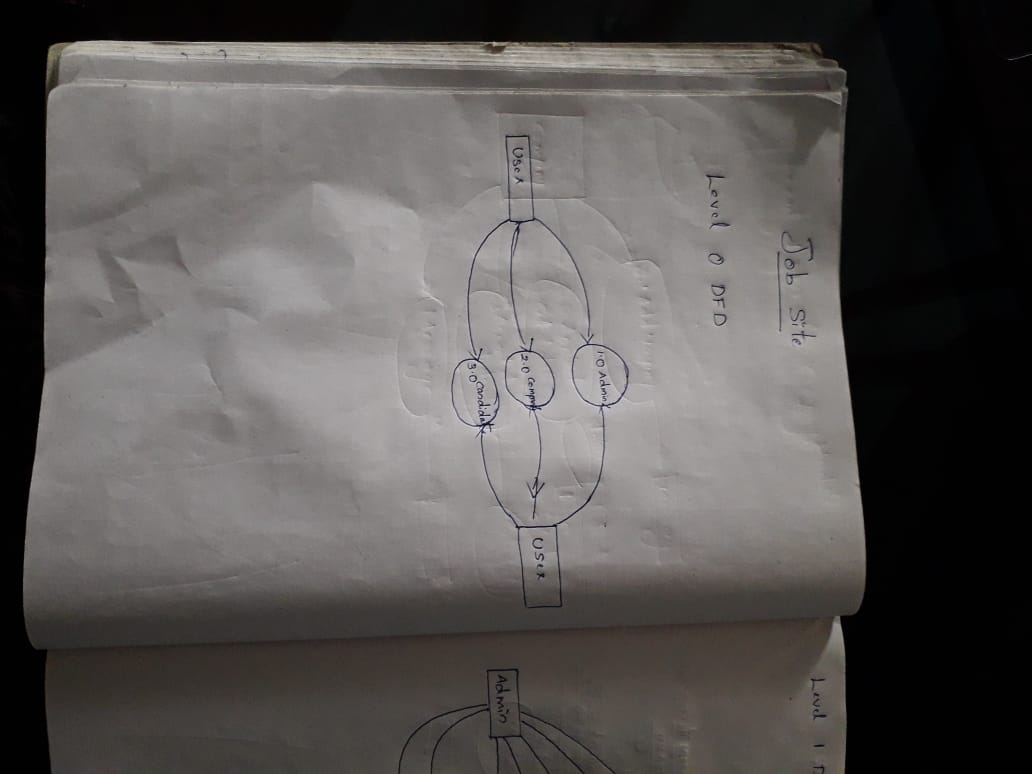 Job Site
Level 0 DFD
User
1.0 Admin
2.0 Company
3.0 Candidate
User
Level 1
Admin